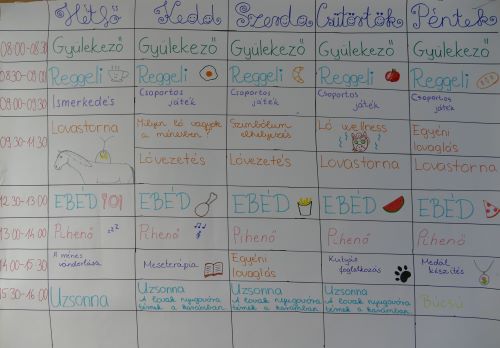 Hétfő Kedd Szerda Csütörtök Péntek
08:00-08:30 Gyülekező Gyülekező Gyülekező Gyülekező Gyülekező
08:30-09:00 Reggeli Reggeli Reggeli Reggeli Reggeli
09:00-09:30 Ismerkedés Csoportos játék Csoportos játék Csoportos játék Csoportos játék
09:30-11:30 Lovastorna Milyen ló vagyok a ménesben? Szimbólum elhelyezés Ló wellness Egyéni lovaglás
Lóvezetés Lóvezetés Lovastorna Lovastorna
12:30-13:00 EBÉD EBÉD EBÉD EBÉD EBÉD
13:00-14:00 Pihenő zzz Pihenő Pihenő Pihenő Pihenő
14:00-15:30 A ménes vándorlása Meseterápia Egyéni lovaglás Kutyás foglalkozás Medál készítés
15:30-16:00 Uzsonna Uzsonna Uzsonna Uzsonna Búcsú
A lovak nyugovóra térnek a karámban A lovak nyugovóra térnek a karámban A lovak nyugovóra térnek a karámban